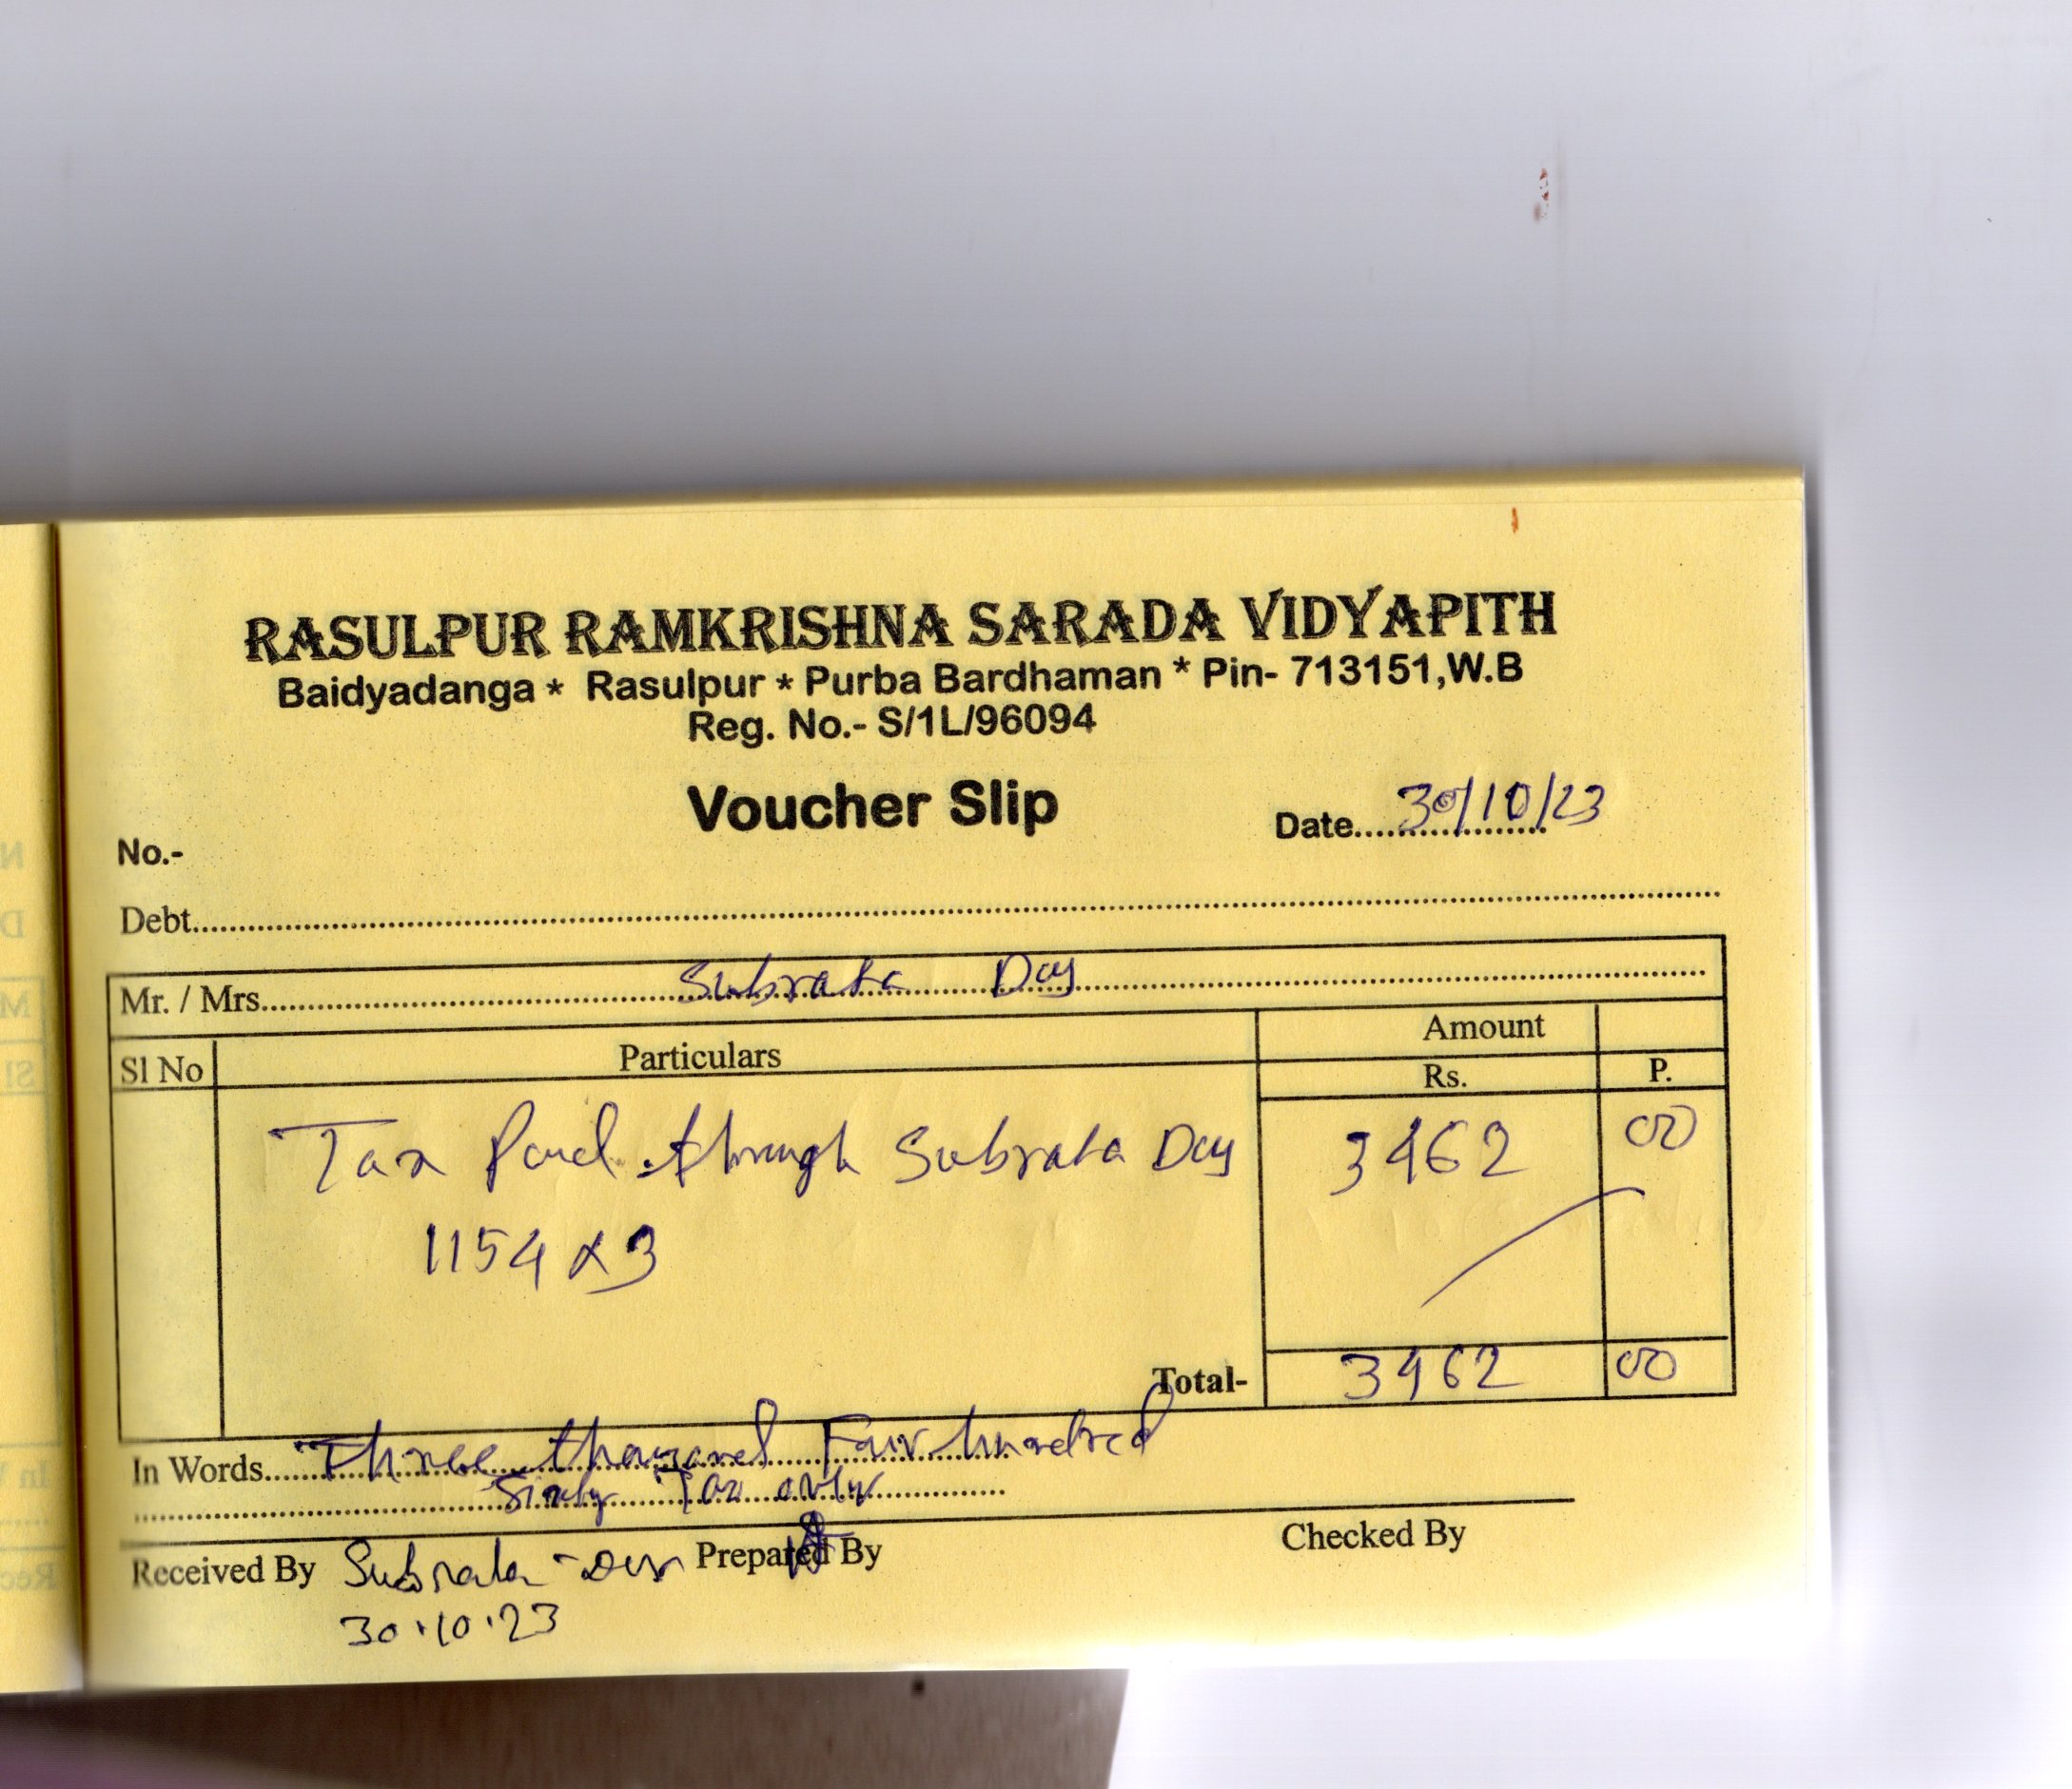 RASULPUR RAMKRISHNA SARADA VIDYAPITH
Baidyadanga * Rasulpur * Purba Bardhaman * Pin- 713151,W.B
Reg. No.- S/1L/96094
Voucher Slip
Date....30/10/23
No.-
Debt
Mr. / Mrs. Subrata Dey
Sl No Particulars Amount
Rs. P.
Tax Paid through Subrata Dey 3462 00
1154 x 3
Total- 3462 00
In Words Three thousand Four hundred
Sixty Two only
Received By Subrata Dey Prepared By Checked By
30.10.23